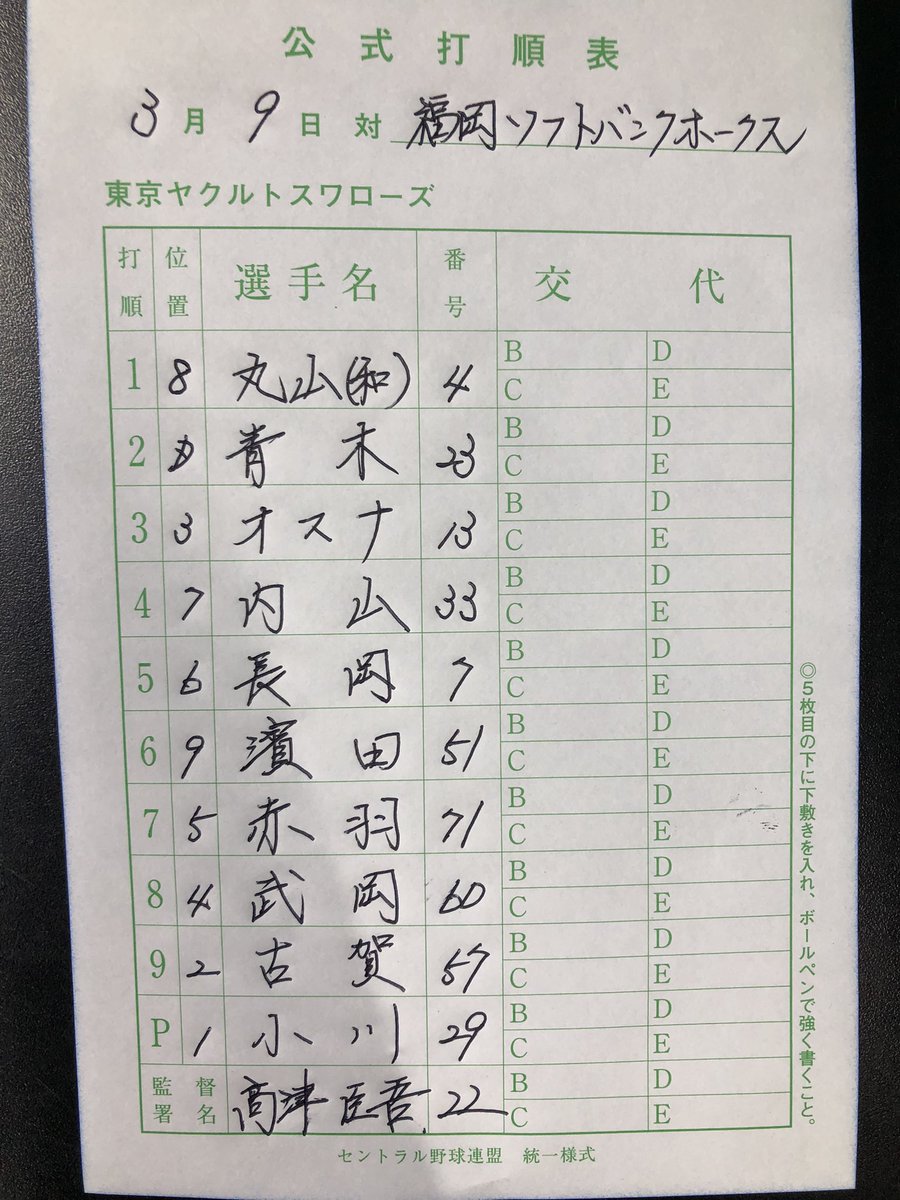 公式打順表
3月9日対 福岡ソフトバンクホークス
東京ヤクルトスワローズ
打順 位置 選手名 番号 交代
1 8 丸山(和) 4 B D C E
2 D 青木 23 B D C E
3 3 オスナ 13 B D C E
4 7 内山 33 B D C E
5 6 長岡 7 B D C E
6 9 濱田 51 B D C E
7 5 赤羽 71 B D C E
8 4 武岡 60 B D C E
9 2 古賀 57 B D C E
P 1 小川 29 B D C E
監督署名 高津臣吾 22 B D C E
◎5枚目の下に下敷きを入れ、ボールペンで強く書くこと。
セントラル野球連盟 統一様式